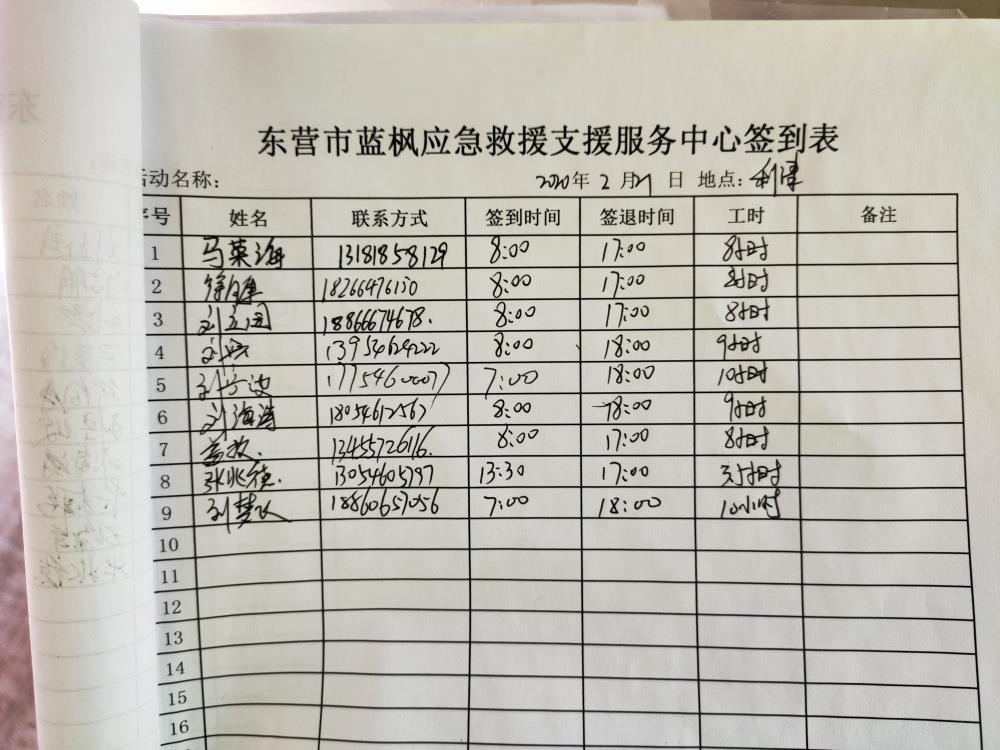 东营市蓝枫应急救援支援服务中心签到表
活动名称: 2020年 2 月21 日 地点: 利津
序号 姓名 联系方式 签到时间 签退时间 工时 备注
1 马荣海 13181858129 8:00 17:00 8小时
2 18266476150 8:00 17:00 8小时
3 刘立国 18866674678. 8:00 17:00 8小时
4 13954624222 8:00 18:00 9小时
5 17754600077 7:00 18:00 10小时
6 刘海涛 18054612567 8:00 18:00 9小时
7 13455726116. 8:00 17:00 8小时
8 张兆德. 13054605797 13:30 17:00 3.5小时
9 18860657056 7:00 18:00 10小时
10
11
12
13
14
15
16